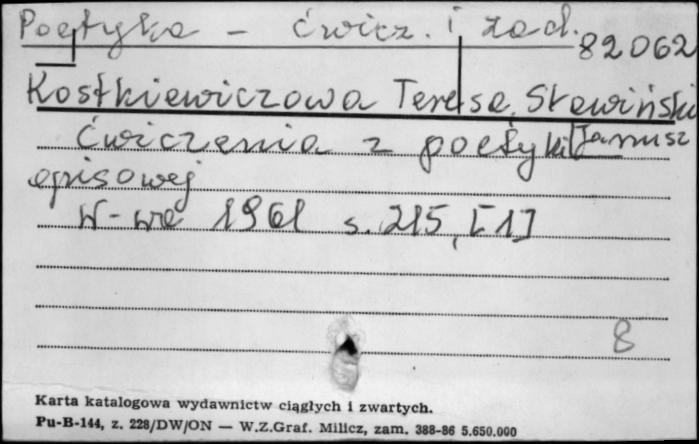 Poetyka - ćwicz. i zad.
82062
Kostkiewiczowa Teresa, Sławiński
Janusz
Ćwiczenia z poetyki
opisowej
W-wa 1961 s. 215, [1]
8
Karta katalogowa wydawnictw ciągłych i zwartych.
Pu-B-144, z. 228/DW/ON — W.Z.Graf. Milicz, zam. 388-86 5.650.000